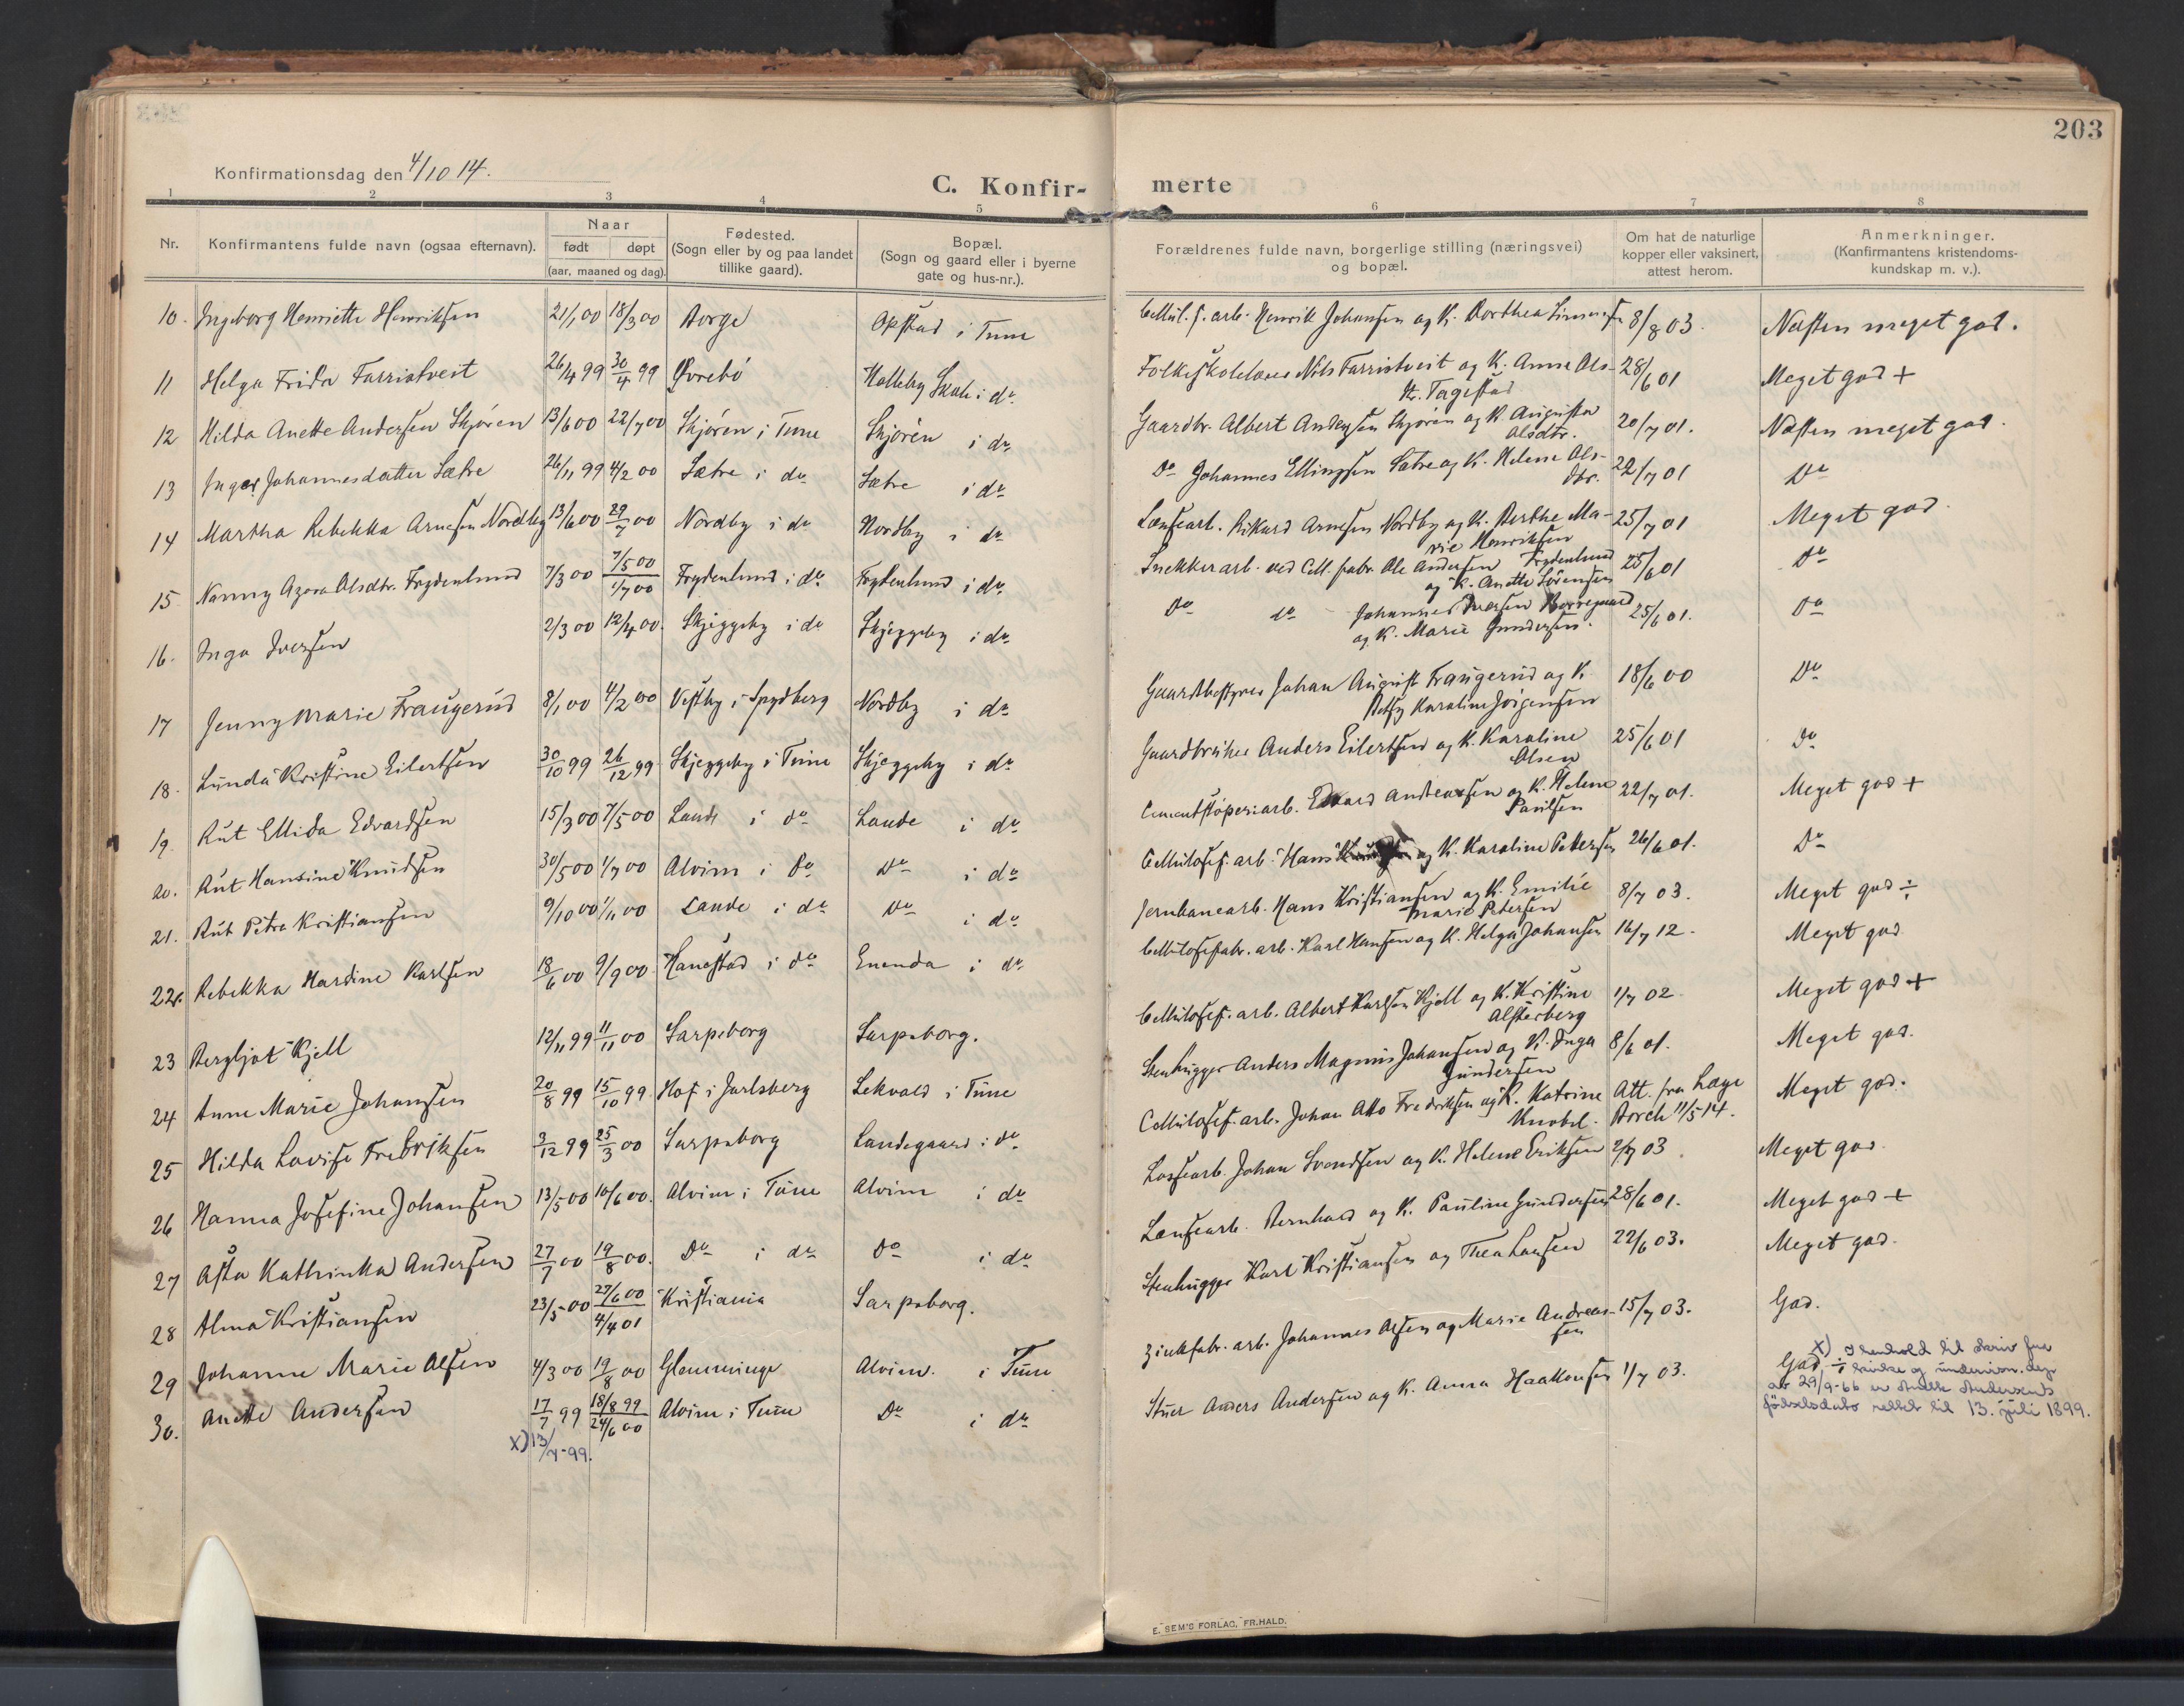 203
Konfirmationsdag den 4/10 14.
C. Konfir-
merte
1 2 3 4 5 6 7 8
Nr.
Konfirmantens fulde navn (ogsaa efternavn).
Naar
født døpt
(aar, maaned og dag).
Fødested.
(Sogn eller by og paa landet
tillike gaard).
Bopæl.
(Sogn og gaard eller i byerne
gate og hus-nr.).
Forældrenes fulde navn, borgerlige stilling (næringsvei)
og bopæl.
Om hat de naturlige
kopper eller vaksinert,
attest herom.
Anmerkninger.
(Konfirmantens kristendoms-
kundskap m. v.).
10. Ingeborg Henriette Henriksen 21/1 00 18/3 00 Borge Opstad i Tune Cellul.f. arb. Henrik Johansen og K. Dorthea 8/8 03. Næsten meget god.
11 Helga Frida Farristveit 26/4 99 30/4 99 Øvrebö Halleby Skole i do Folkeskolelærer Nils Farristveit og K. Anna Ols- 28/6 01 Meget god +
tr. Tagestad
12 Hilda Anette Andersen Skjören 13/6 00 22/7 00 Skjören i Tune Skjören i do Gaardbr. Albert Andersen Skjören og K. Augusta 20/7 01. Næsten meget god.
Olsdtr.
13 Inger Johannesdatter Sætre 26/11 99 4/2 00 Sætre i do Sætre i do Do Johannes Ellingsen Sætre og K. Helene Ols- 22/7 01 Do
dtr.
14 Martha Rebekka Arnesen Nordby 13/6 00 29/7 00 Nordby i do Nordby i do Lænsearb. Rikard Arnesen Nordby og K. Berthe Ma- 25/7 01 Meget god.
rie Henriksen
15 Nanny Azora Olsdtr. Frydenlund 7/3 00 7/5 00 1/7 00 Frydenlund i do Frydenlund i do Snekkerarb. ved Cell. fabr. Ole Andersen Frydenlund 25/6 01 Do
og K. Anette Sörensen
16. Inga Iversen 2/3 00 12/4 00. Skjeggeby i do Skjeggeby i do Do do Johannes Iversen Borregaard 25/6 01. Do
og K. Marie Gundersen.
17 Jenny Marie Fraugerud 8/1 00 4/2 00 Vestby i Spydberg Nordby i do Gaardbestyrer Johan August Fraugerud og K. 18/6 00 Do
Betsy Karoline Jörgensen
18. Lunda Kristine Eilertsen 30/10 99 26/12 99 Skjeggeby i Tune Skjeggeby i do Gaardbruker Anders Eilertsen og K. Karoline 25/6 01 Do
Olsen
19. Rut Ellida Edvardsen 15/3 00 7/5 00 Lande i do Lande i do Cementstöperiarb. Edvard Andreassen og K. Helene 22/7 01. Meget god +
Paulsen
20. Rut Hansine Knudsen 30/5 00 1/7 00 Alvim i do Do i do Cellulosef. arb. Hans og K. Karoline Pettersen 26/6 01. Do
21. Rut Petra Kristiansen 9/10 00 1/11 00 Lande i do Do i do Jernbanearb. Hans Kristiansen og K. Emilie 8/7 03. Meget god ÷
Marie Petersen
22. Rebekka Hardine Karlsen 18/6 00 9/9 00 Hanestad i do Enenda i do Cellulosefabr. arb. Karl Hansen og K. Helga Johansen 16/7 12. Meget god
23 Bergljot Kjell 12/11 99 11/11 00 Sarpsborg Sarpsborg. Cellulosef. arb. Albert Karlsen Kjell og K. Kristine 1/7 02. Meget god +
Alsterberg
24 Anne Marie Johansen 20/8 99 15/10 99. Hof i Jarlsberg Lekvold i Tune Stenhugger Anders Magnus Johansen og K. Inga 8/6 01. Meget god.
Gundersen
25 Hilda Lovise Fredriksen 3/12 99 25/3 00 Sarpsborg Landegaard i do Cellulosef. arb. Johan Otto Fredriksen og K. Katrine Att. fra Læge Meget god.
Knobel. Borch 11/5 14.
26 Hanna Josefine Johansen 13/5 00 10/6 00. Alvim i Tune Alvim i do Lossearb. Johan Svendsen og K. Helene Eriksen 2/7 03 Meget god.
27 Asta Kathinka Andersen 27/7 00 19/8 00. Do i do Do i do Lænsearb. Bernhard og K. Pauline Gundersen 28/6 01. Meget god +
28 Alma Kristiansen 23/5 00 27/6 00 4/4 01 Kristiania Sarpsborg. Stenhugger Karl Kristiansen og Thea Larsen 22/6 03. Meget god.
29 Johanne Marie Olsen 4/3 00 19/8 00 Glemminge Alvim. i Tune Zinkfabr. arb. Johannes Olsen og Marie Andreas- 15/7 03. God.
sen
30. Anette Andersen 17/7 99 18/8 99 24/6 00 Alvim i Tune Do i do Stuer Anders Andersen og K. Anna Haakonsen 1/7 03. God ÷
x) 13/7-99.
x) I henhold til skriv fra
kirke og undervisn. dep
av 29/9-66 er Anette Andersens
födselsdato rettet til 13. juli 1899.
E. SEM'S FORLAG, FR.HALD.